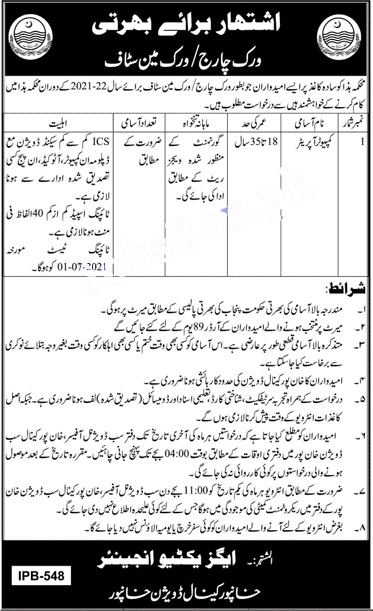 اشتہار برائے بھرتی
ورک چارج/ورک مین سٹاف
محکمہ ہذا کو سادہ کاغذ پر ایسے امیدواران جو بطور ورک چارج/ورک مین سٹاف برائے سال 22-2021 کے دوران محکمہ ہذا میں
کام کرنے کے خواہشمند ہیں سے درخواست مطلوب ہیں۔
نمبر شمار نام آسامی عمر کی حد ماہانہ تنخواہ تعداد آسامی اہلیت
1 کمپیوٹر آپریٹر 18 تا 35 سال گورنمنٹ کے ضرورت کے ICS کم سے کم سیکنڈ ڈویژن مع
منظور شدہ ویجز مطابق ڈپلومہ ان کمپیوٹر، آٹو کیڈ، ان پیج کسی
ریٹ کے مطابق تصدیق شدہ ادارے سے ہونا
ادا کی جائے گی۔ لازمی ہے۔
ٹائپنگ اسپیڈ کم از کم 40 الفاظ فی
منٹ ہونا لازمی ہے۔
ٹائپنگ ٹیسٹ مورخہ
01-07-2021 کو ہوگا۔
شرائط:
۱۔ مندرجہ بالا آسامی کی بھرتی حکومت پنجاب کی بھرتی پالیسی کے مطابق میرٹ پر ہوگی۔
۲۔ میرٹ پر منتخب ہونے والے امیدواران کے آرڈر 89 یوم کے لئے کئے جائیں گے
۳۔ متذکرہ بالا آسامی قطعی طور پر عارضی ہے۔ اس آسامی کو کسی بھی وقت ختم یا کسی بھی اہلکار کو کسی وقت بغیر وجہ بتلائے نوکری سے
برخاست کیا جا سکتا ہے۔
۴۔ امیدواران کا خان پور کینال ڈویژن کی حدود کا رہائشی ہونا ضروری ہے۔
۵۔ درخواست کے ہمراہ تجربہ سرٹیفکیٹ، شناختی کارڈ، تعلیمی اسناد اور ڈومیسائل (تصدیق شدہ) کالف ہونا ضروری ہے۔ جبکہ اصل
کاغذات انٹرویو کے وقت پیش کرنا لازمی ہوں گے۔
۶۔ امیدواران کو مطلع کیا جاتا ہے کہ درخواستیں ہر ماہ کی آخری تاریخ تک دفتر سب ڈویژنل آفیسر، خان پور کینال سب
ڈویژن خان پور میں دفتری اوقات کے مطابق بوقت 04:00 بجے تک پہنچ جانی چاہییں۔ مقررہ تاریخ کے بعد موصول
ہونے والی درخواستوں پر کوئی کارروائی نہ کی جائے گی۔
۷۔ ضرورت کے مطابق انٹرویو ہر ماہ کی یکم تاریخ کو 11:00 بجے دن سب ڈویژنل آفیسر، خان پور کینال سب ڈویژن خان
پور کے دفتر میں ریکروٹمنٹ کمیٹی کی موجودگی میں ہوگا جس کے لئے کوئی علیحدہ اطلاع نہیں دی جائے گی۔
۸۔ بغرض انٹرویو کے لئے آنے والے امیدواران کو کوئی سفر خرچ یا یومیہ الاؤنس نہیں دیا جائے گا۔
المشتہر:۔ ایگزیکٹیو انجینئر
خانپور کینال ڈویژن خانپور
IPB-548